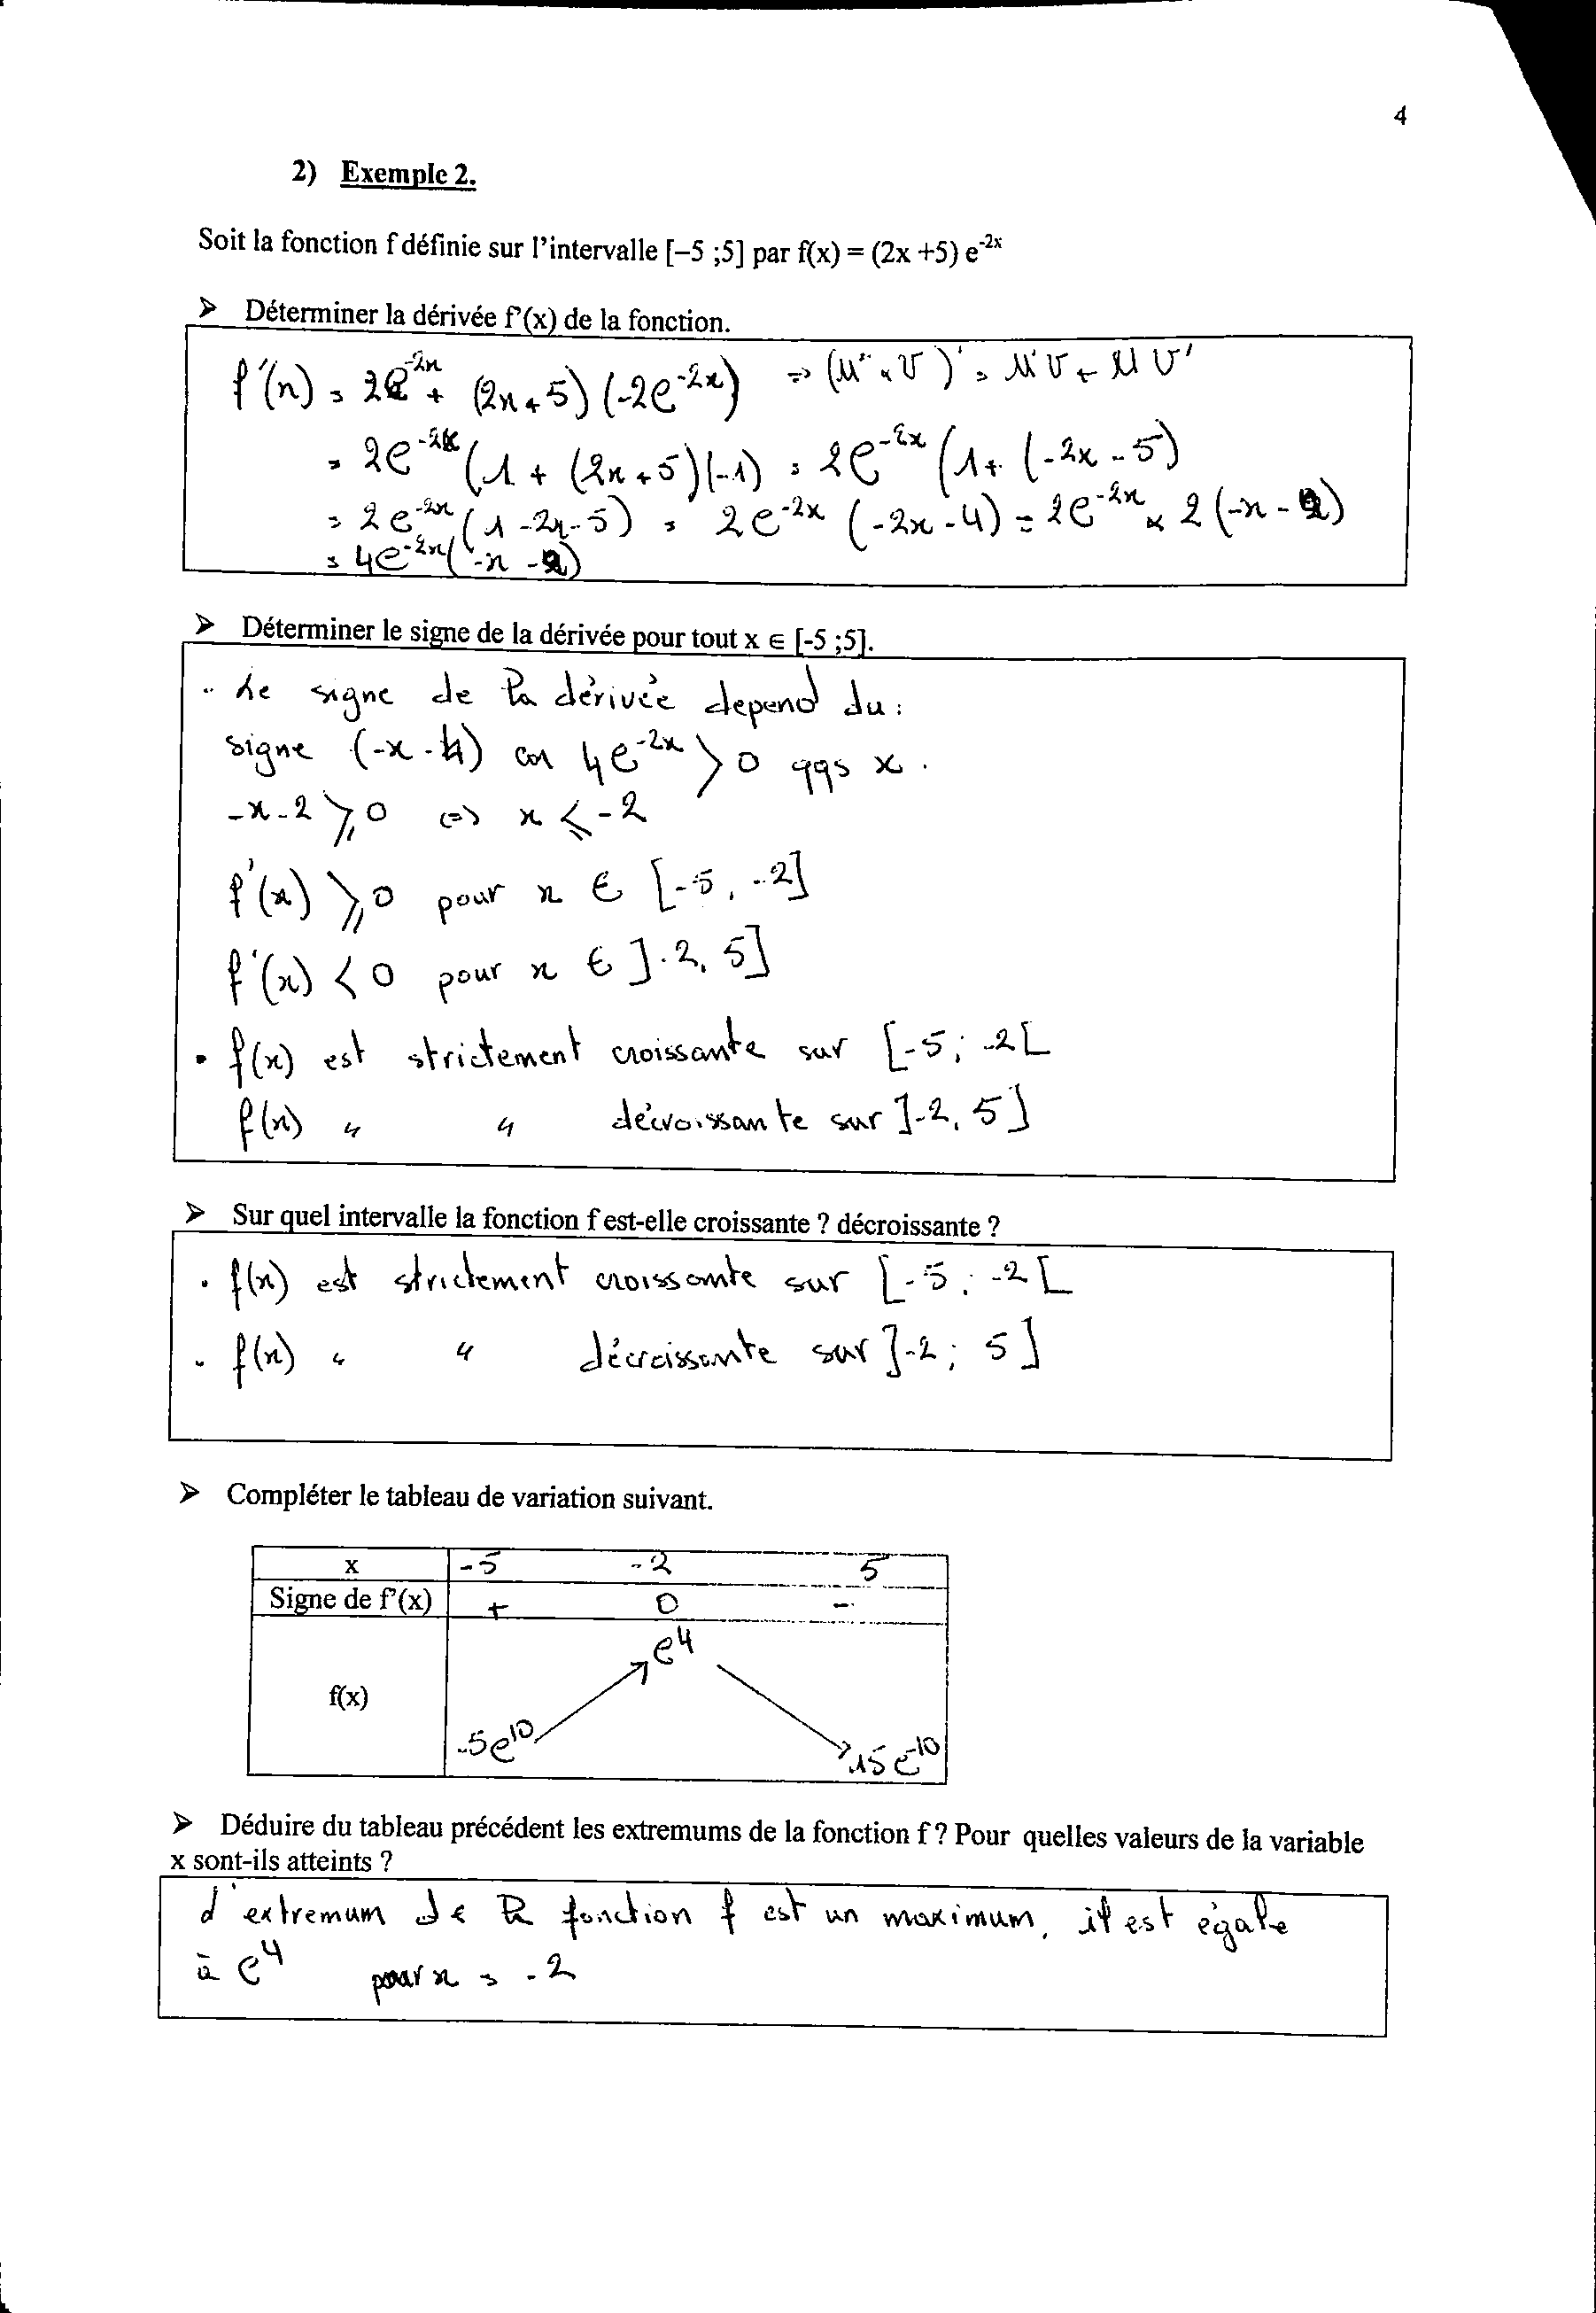 4
2) Exemple 2.
Soit la fonction f définie sur l'intervalle [–5 ;5] par f(x) = (2x +5) e^-2x
➢ Déterminer la dérivée f'(x) de la fonction.
f'(x) = 2e^-2x + (2x+5)(-2e^-2x) => (U × V)' = U'V + UV'
= 2e^-2x (1 + (2x+5)(-1) = 2e^-2x (1 + (-2x - 5)
= 2e^-2x (1 - 2x - 5) = 2e^-2x (-2x - 4) = 2e^-2x × 2(-x - 2)
= 4e^-2x (-x - 2)
➢ Déterminer le signe de la dérivée pour tout x ∈ [-5 ;5].
. Le signe de la dérivée depend du :
signe (-x - 4) car 4e^-2x > 0 qqs x .
-x - 2 ⩾ 0 <=> x ⩽ -2
f'(x) ⩾ 0 pour x ∈ [-5, -2]
f'(x) < 0 pour x ∈ ]-2, 5]
• f(x) est strictement croissante sur [-5 ; -2[
f(x) " " décroissante sur ]-2, 5]
➢ Sur quel intervalle la fonction f est-elle croissante ? décroissante ?
• f(x) est strictement croissante sur [-5 ; -2[
• f(x) " " décroissante sur ]-2 ; 5]
➢ Compléter le tableau de variation suivant.
x -5 -2 5
Signe de f'(x) + 0 -
e^4
f(x)
-5e^10 15e^-10
➢ Déduire du tableau précédent les extremums de la fonction f ? Pour quelles valeurs de la variable
x sont-ils atteints ?
L'extremum de la fonction f est un maximum, il est égale
à e^4 pour x = -2